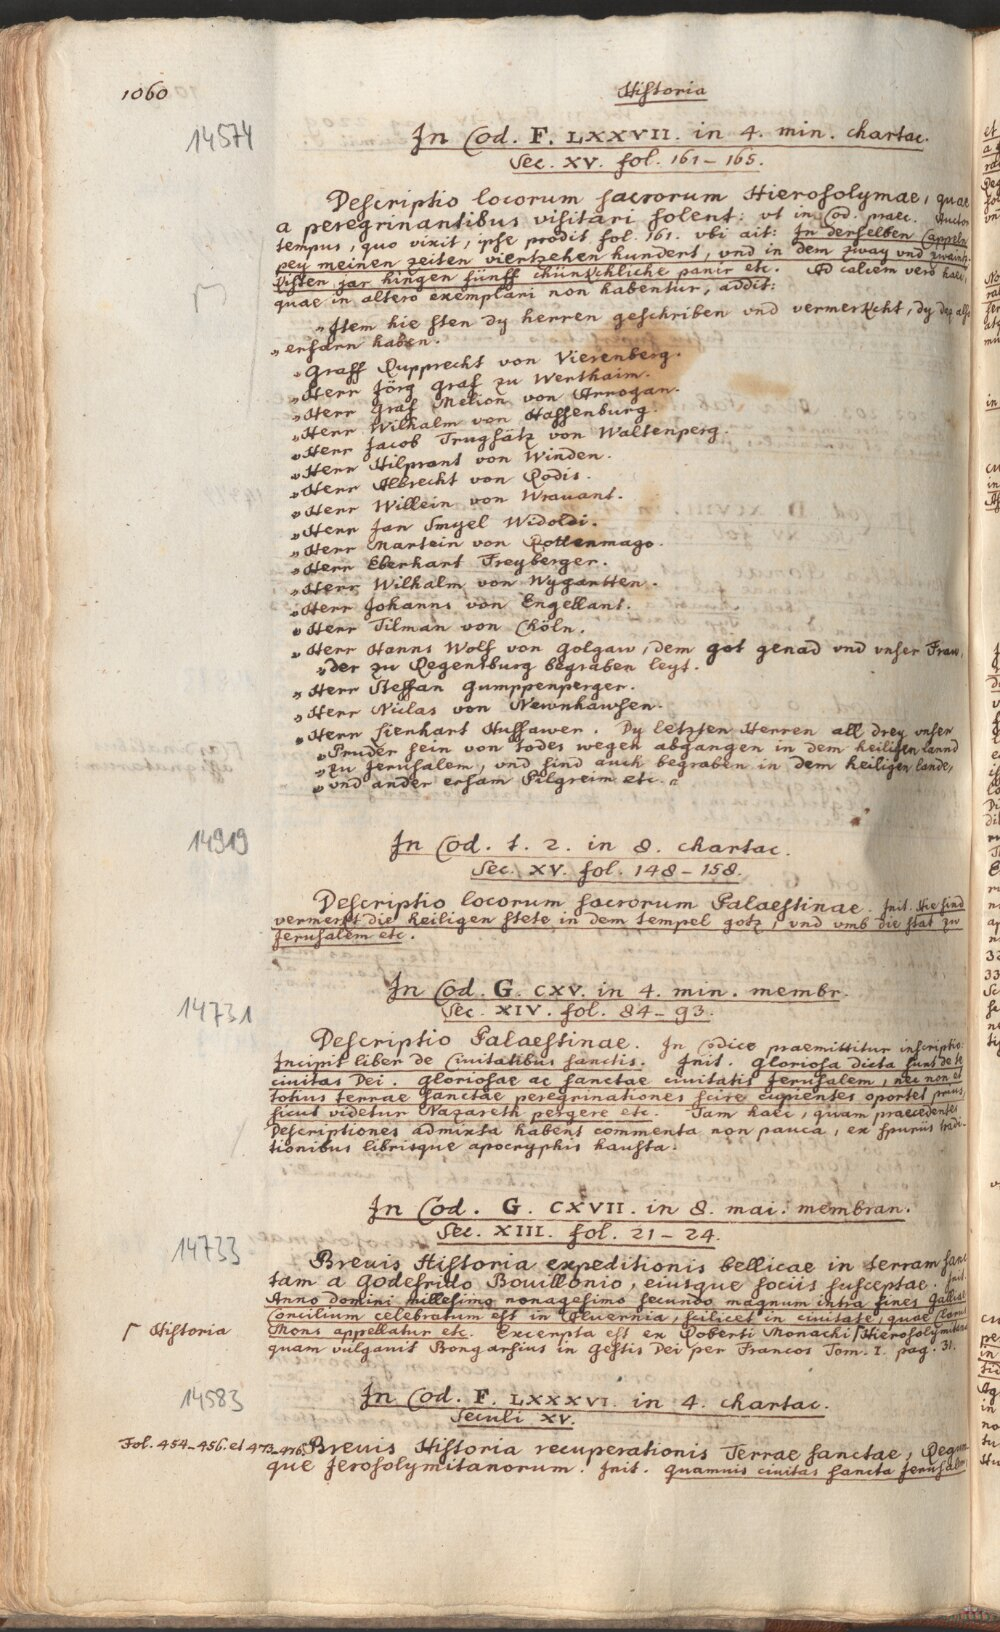 1060
Historia
14574
In Cod. F. LXXVII. in 4. min. chartac.
Sec. XV. fol. 161–165.
Descriptio locorum sacrorum Hierosolymae, quae
a peregrinantibus visitari solent: vt in Cod. praec. Auctor
tempus, quo vixit, ipse prodit fol. 161. vbi ait: In derselben Cappeln
pey meinen zeiten viertzehen hundert, vnd in dem zway vnd zwaintz-
sisten jar hingen fünff chünschliche panir etc. Ad calcem vero haec,
quae in altero exemplari non habentur, addit:
„Item hie sten dy herren geschriben vnd vermerkcht, dy dez als
„erfarn haben.
„Graff Rupprecht von Vierenberg.
„Herr Jörg Graf zu Werthaim.
„Herr Graf Melion von Arrogan.
„Herr Wilhalm von Hassenburg.
„Herr Jacob Trugsätz von Waltenperg.
„Herr Hilprant von Winden.
„Herr Albrecht von Rodis.
„Herr Willein von Wrauant.
„Herr Jan Smyel Widoldi.
„Herr Martein von Rottenmago.
„Herr Eberhart Freyberger.
„Herr Wilhalm von Wygartten.
„Herr Johanns von Engellant.
„Herr Tilman von Chöln.
„Herr Hanns Wolf von Golgaw, dem got genad vnd vnser Fraw,
„der zu Regensburg begraben leyt.
„Herr Steffan Gumppenperger.
„Herr Niclas von Newnhawsen.
„Herr Lienhart Hussawer. Dy letzten Herren all drey vnser
„Pruder sein von todes wegen abgangen in dem heiligen Lannd
„zu Jerusalem, vnd sind auch begraben in dem heiligen lande,
„vnd ander ersam Pilgreim etc.“
14919
In Cod. f. 2. in 8. chartac.
Sec. XV. fol. 148–158.
Descriptio locorum sacrorum Palaestinae. Init. Hie sind
vermerkt die heiligen stete in dem tempel gotz, vnd vmb die stat zu
Jerusalem etc.
14731
In Cod. G. CXV. in 4. min. membr.
Sec. XIV. fol. 84–93.
Descriptio Palaestinae. In Codice praemittitur inscriptio:
Incipit liber de Civitatibus sanctis. Init. Gloriosa dicta sunt de te
civitas Dei. Gloriosae ac sanctae civitatis Jerusalem, nec non et
totius terrae sanctae peregrinationes scire cupientes oportet prius,
sicut videtur Nazareth pergere etc. Tam haec, quam praecedentes
Descriptiones admixta habent commenta non pauca, ex spuriis tradi-
tionibus librisque apocryphis hausta.
In Cod. G. CXVII. in 8. mai. membran.
Sec. XIII. fol. 21–24.
14733
Brevis Historia expeditionis bellicae in terram sanc
tam a Godefrido Bouillonio, eiusque sociis susceptae. Init.
Anno domini millesimo nonagesimo secundo magnum intra fines Galliae
Concilium celebratum est in Aluernia, scilicet in civitate, quae Clarus
⌈ Historia
Mons appellatur etc. Excerpta est ex Roberti Monachi ⌈Hierosolymitana
quam vulgavit Bongarsius in Gestis Dei per Francos Tom. I. pag. 31.
14583
In Cod. F. LXXXVI. in 4. chartac.
Seculi XV.
Fol. 454–456. et 473–476. Brevis Historia recuperationis Terrae sanctae, Regum
que Jerosolymitanorum. Init. Quamvis civitas sancta Jerusalem